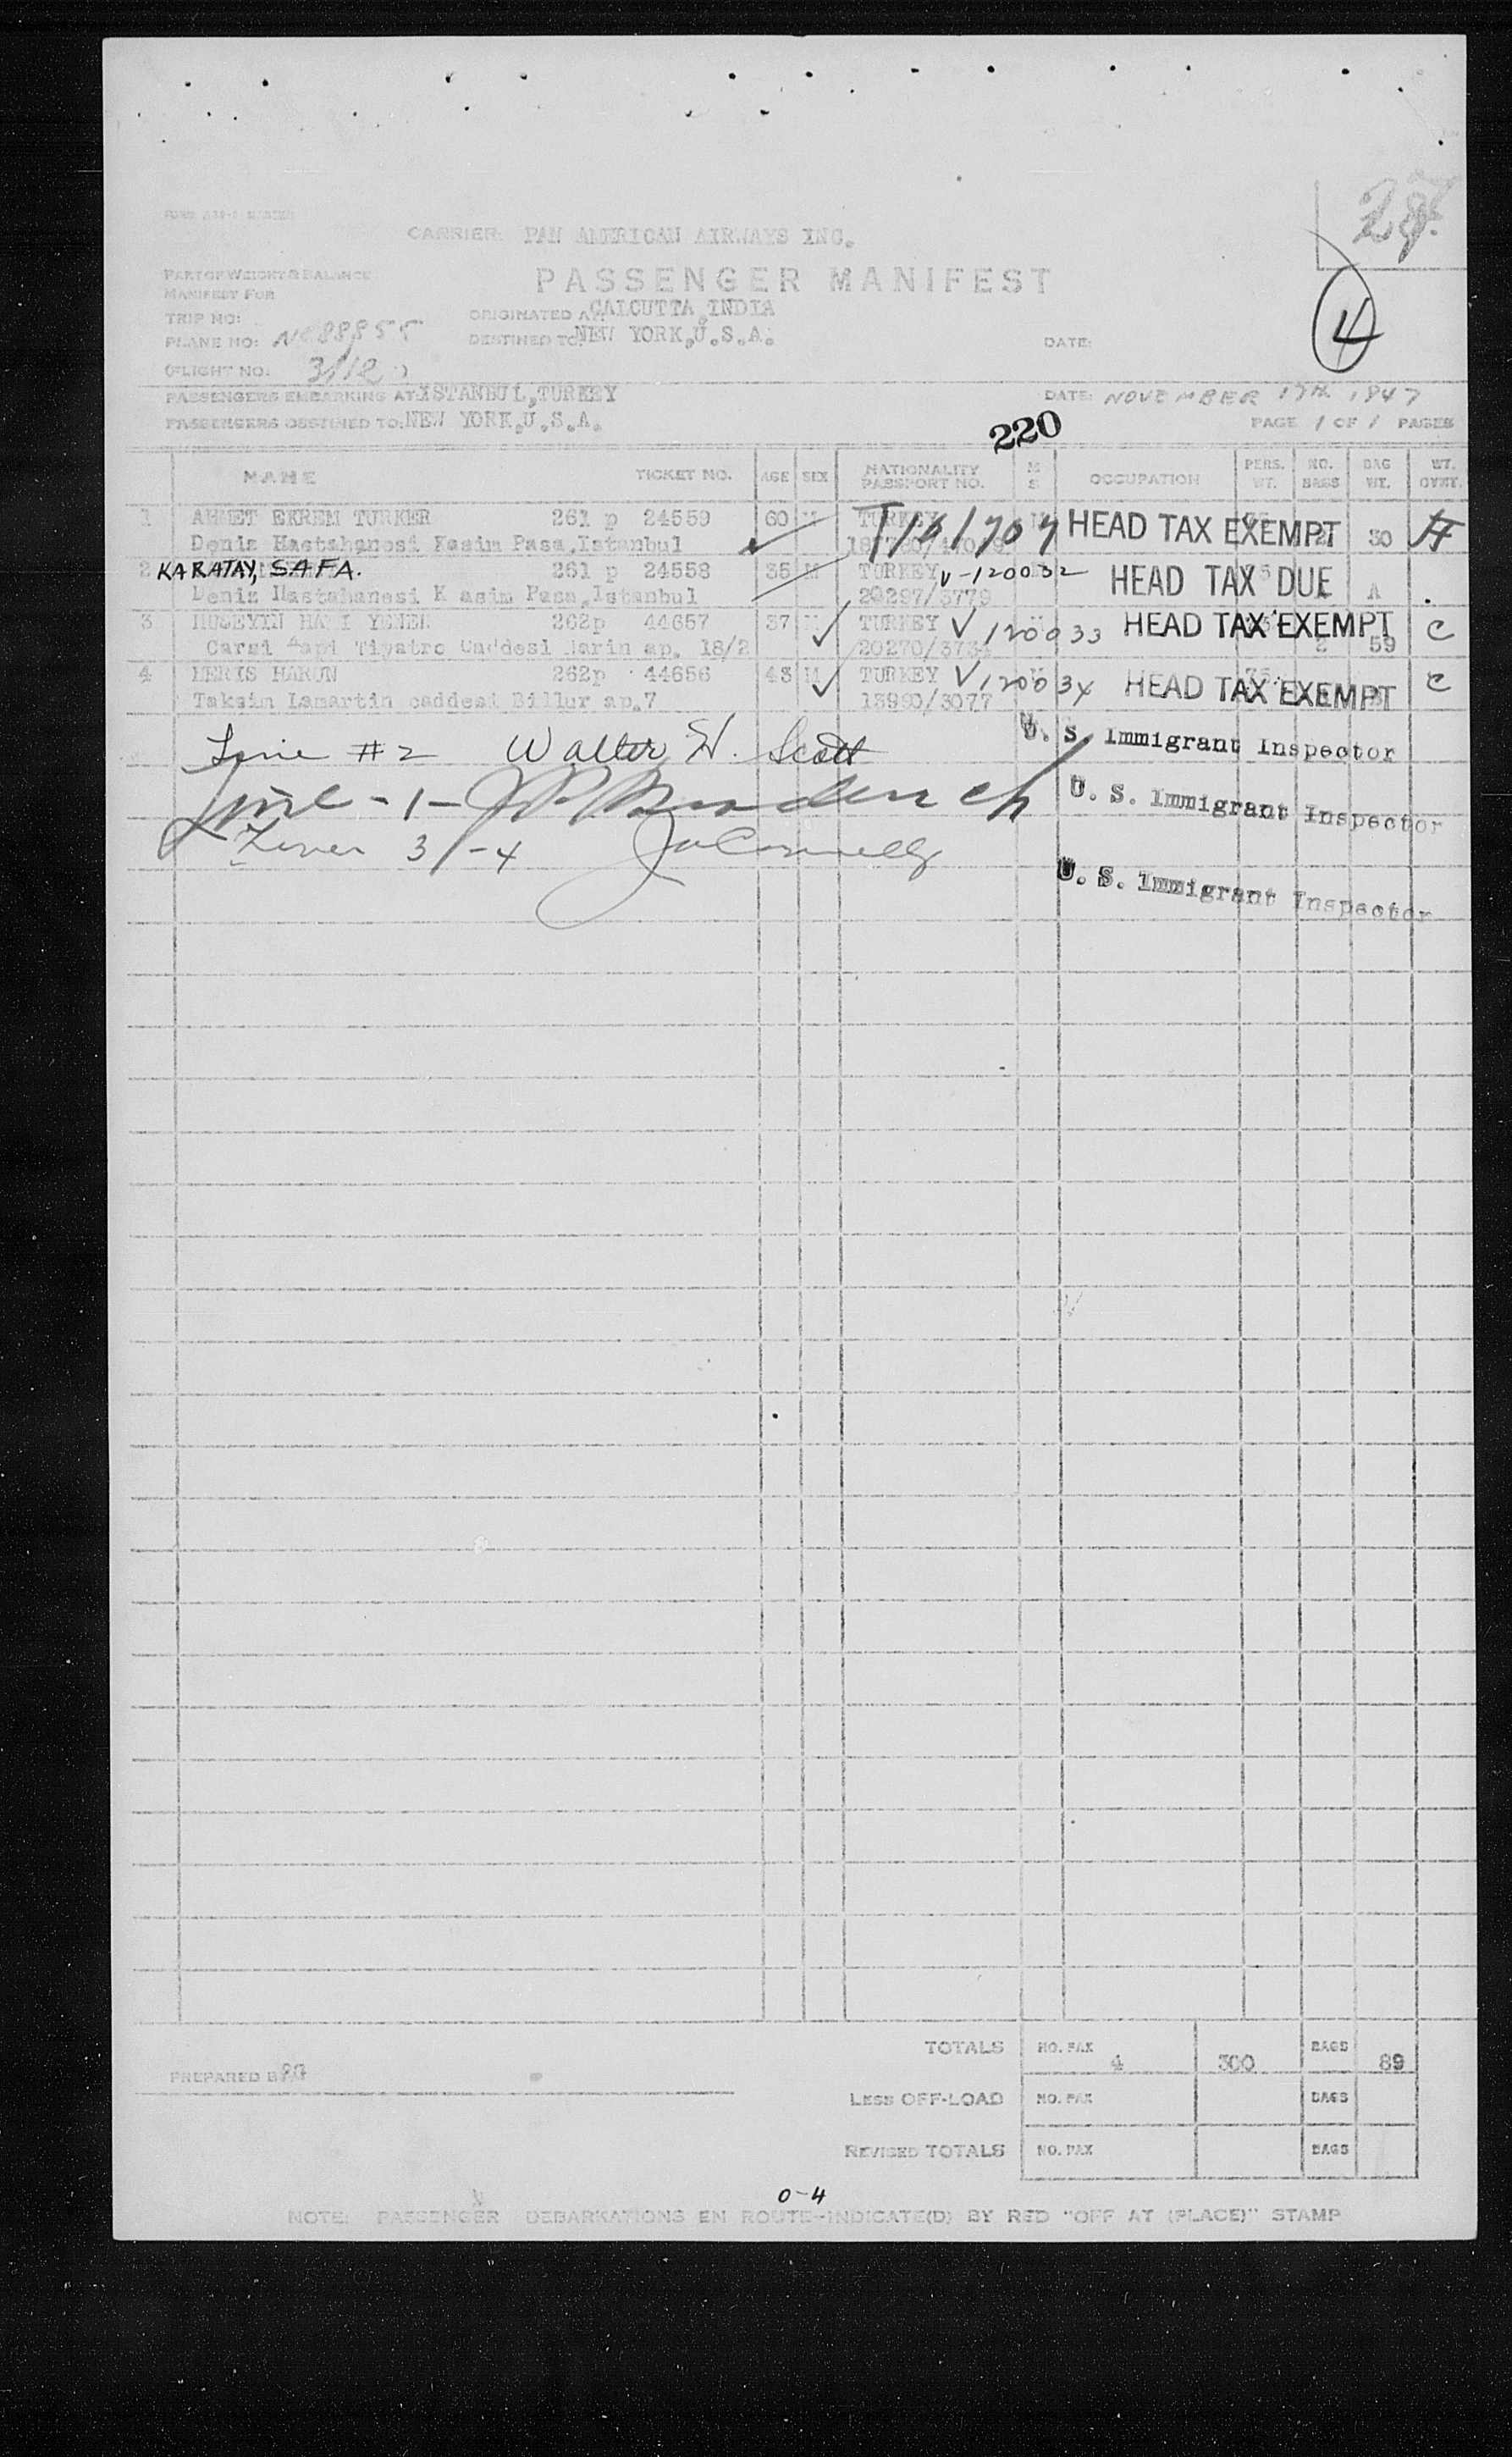 28
CARRIER: PAN AMERICAN AIRWAYS INC.
PART OF WEIGHT & BALANCE
MANIFEST FOR
PASSENGER MANIFEST
4
TRIP NO:
ORIGINATED AT: CALCUTTA, INDIA
PLANE NO: NC 88855
DESTINED TO: NEW YORK, U.S.A.
DATE:
(FLIGHT NO:
PASSENGERS EMBARKING AT: ISTANBUL, TURKEY
DATE: NOVEMBER 17th 1947
PASSENGERS DESTINED TO: NEW YORK, U.S.A.
220
PAGE 1 OF 1 PAGES
NAME TICKET NO. AGE SEX NATIONALITY PASSPORT NO. M S OCCUPATION PERS. WT. NO. BAGS BAG WT. WT. OVWT.
1 AHMET EKREM TURKER 261 p 24559 60 M TURKEY HEAD TAX EXEMPT 30
Deniz Hastahanesi Kasim Pasa, Istanbul
2 KARATAY, SAFA. 261 p 24558 35 M TURKEY V-120032 HEAD TAX DUE
Deniz Hastahanesi K asim Pasa, Istanbul 20297/3779
3 HUSEYIN YENER 262p 44657 37 M TURKEY V 120033 HEAD TAX EXEMPT C
Carsi Kapi Tiyatro Caddesi Narin ap. 18/2 2 59
4 HARUN 262p 44656 43 M TURKEY V 120034 HEAD TAX EXEMPT C
Taksim Lamartin caddesi Billur ap.7 13990/3077
Line #2 Walter H. Scott U. S. Immigrant Inspector
Line -1- U. S. Immigrant Inspector
Lines 3-4 U. S. Immigrant Inspector
TOTALS NO. PAX 4 300 BAGS 89
PREPARED BY
LESS OFF-LOAD NO. PAX BAGS
REVISED TOTALS NO. PAX BAGS
0-4
NOTE: PASSENGER DEBARKATIONS EN ROUTE-INDICATE(D) BY RED "OFF AT (PLACE)" STAMP